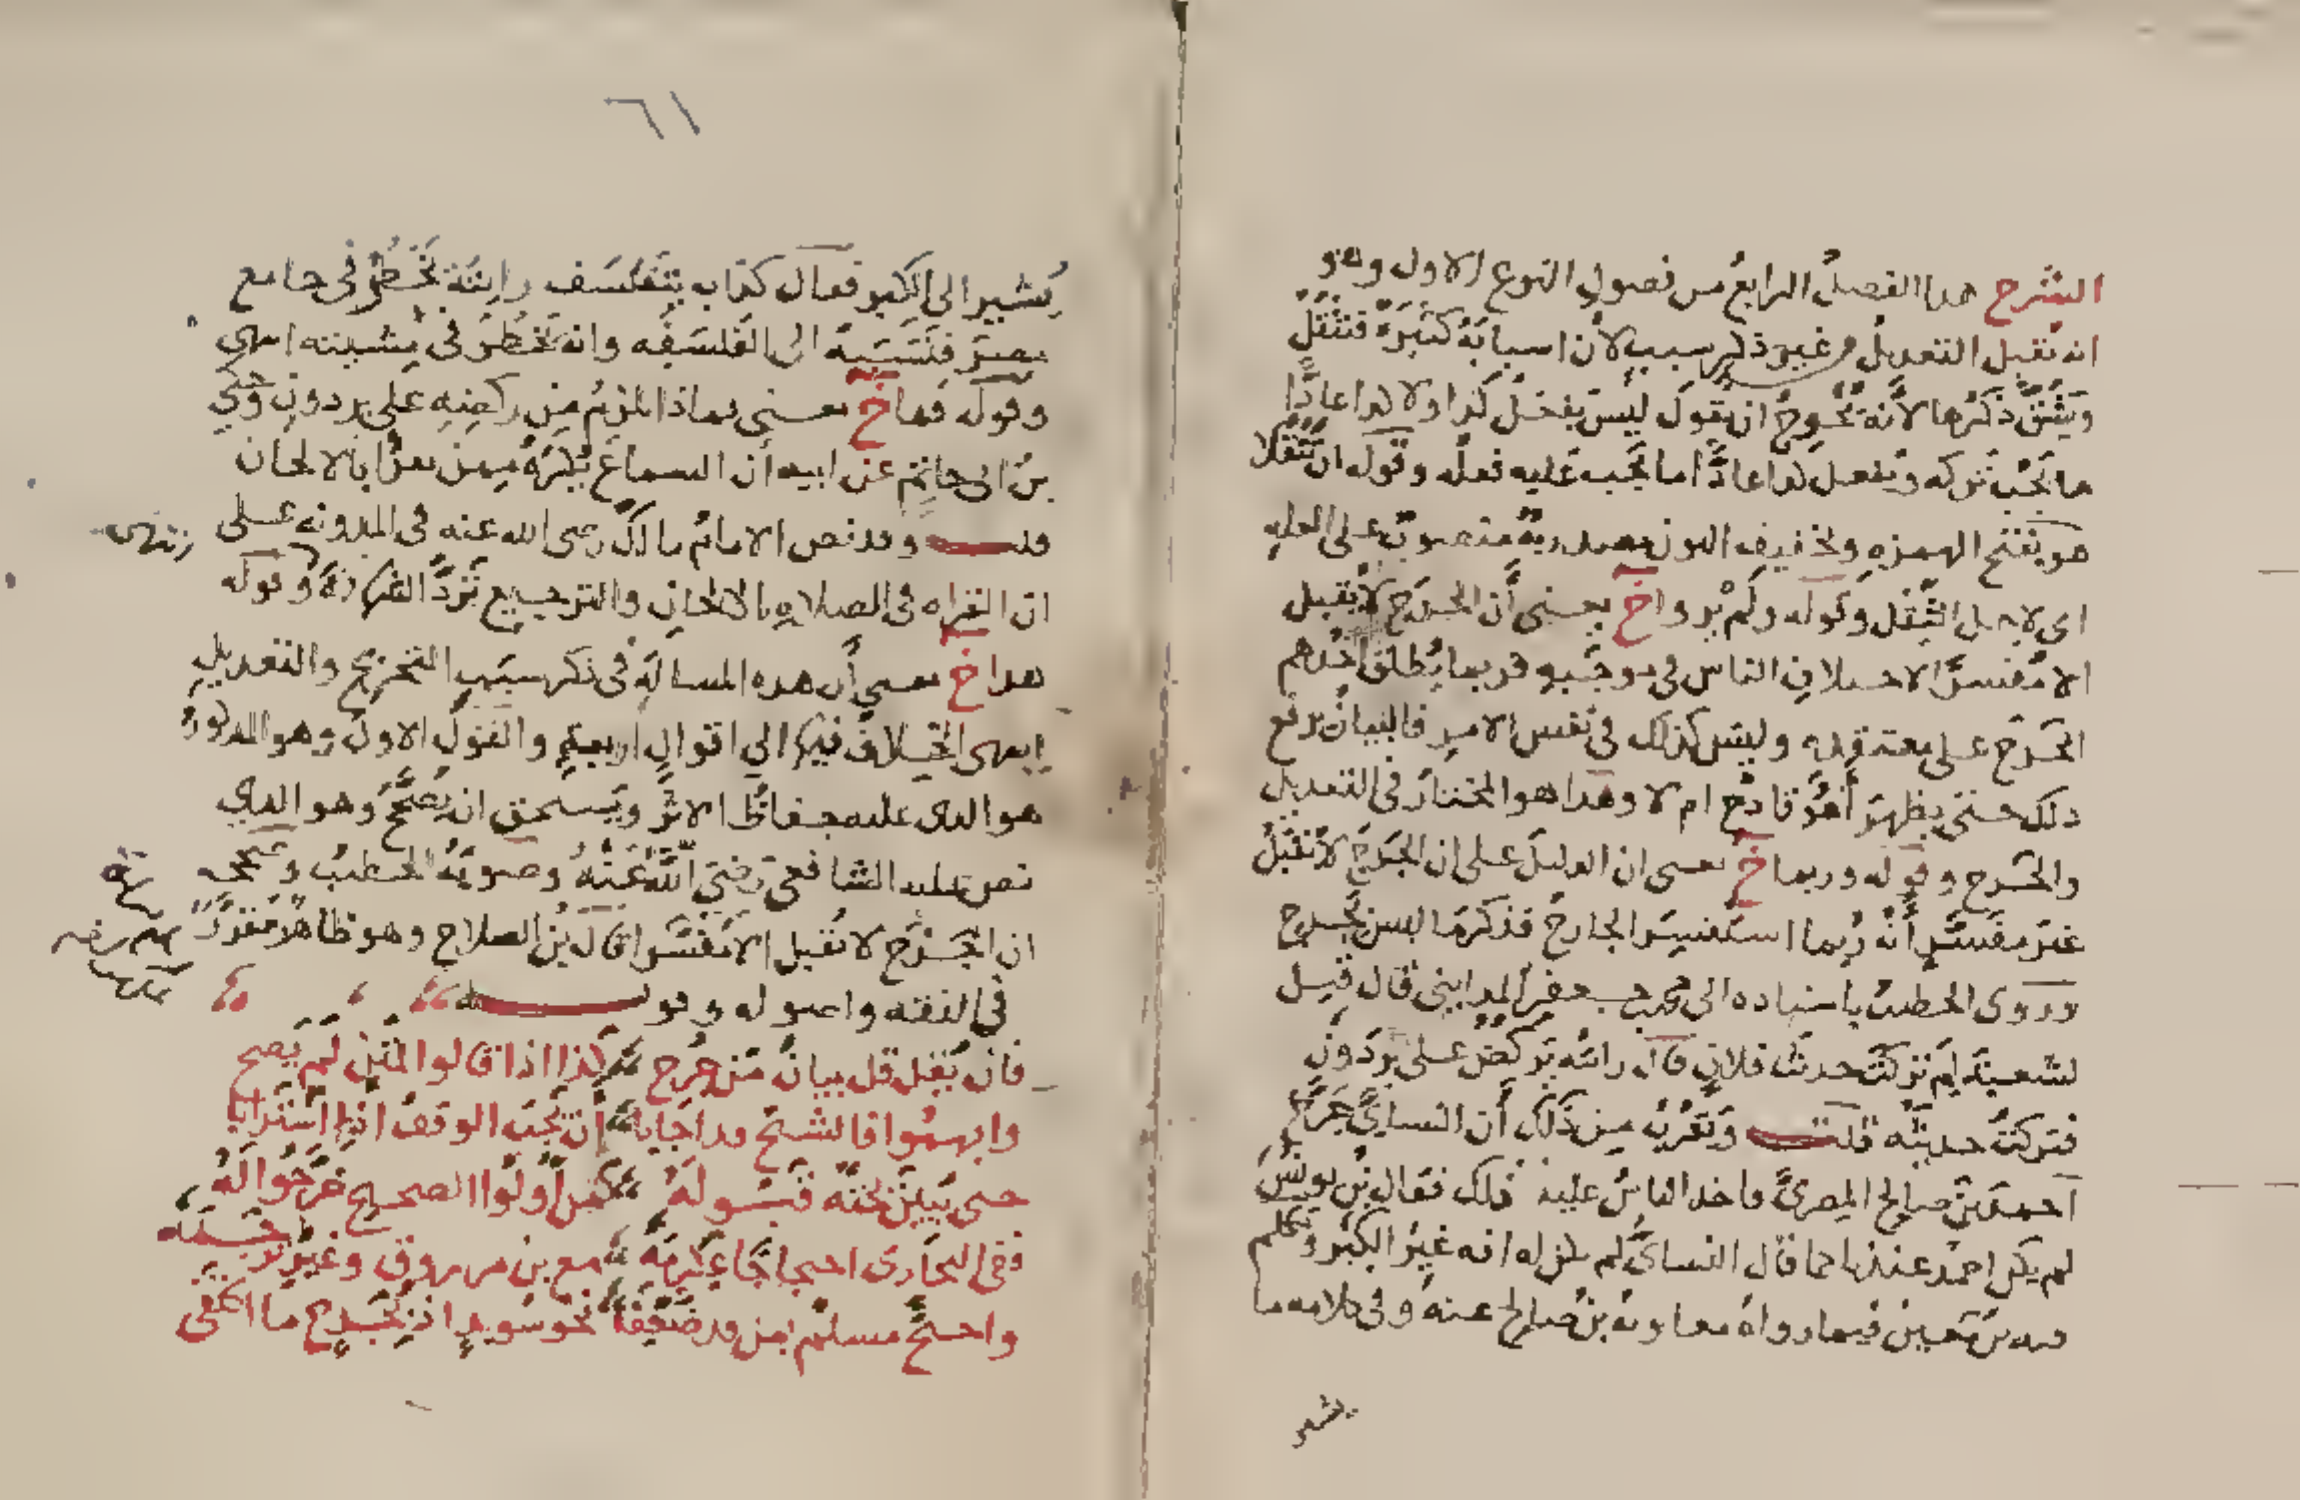 الشرح هدا الفصل الرابع من فصول النوع الاول وهو
انه يقبل التعديل من غير ذكر سببه لأن اسبابه كثيرة فتثقل
ويشق ذكرها لأنه يحوج ان يقول ليس يفعل كدا ولا كدا عادًّا
ما يجب تركه ويفعل كدا عادًّا ما يجب عليه فعله وقوله ان تثقلا
هو بفتح الهمزه وتخفيف النون مصدرية منصوب على العليه
اي لاجل الثقل وقوله ولم يروا خ يعني أن الجرح لا يقبل
الا مفسرًا لاختلاف الناس في موجبه فربما يُطلق احدهم
الجرح على معتقده وليس كذلك في نفس الامر فالبيان يرفع
دلك حتى يظهر أهو قادح ام لا وهدا هو المختار في التعديل
والجرح وقوله وربما خ يعني ان الدليل على ان الجرح لا يقبل
غير مفسّرٍ أنه ربما استفسر الجارح فذكر ما ليس بجرح
وروى الخطيب باسناده الى محمد بن جعفر المدايني قال قيل
لشعبة لِمَ تركت حديث فلان قال رايته يركض على برذون
فتركت حديثه قلت ويقرب من ذلك أن النسايّ جرح
أحمد بن صالح المصري واخد الناس عليه ذلك فقال بن يونس
لم يكن احمد عندنا كما قال النسايُّ لم يكن له افه غير الكبر وتكلم
فيه بن معين فيما رواه معاوية بن صالح عنه وفي كلامه ما
يشير
٦١
يُشير الى الكبر فقال كذاب يتفلسف رايته يخطر في جامع
مصر فنسبه الى الفلسفه وانه يخطر في مشيته
وقوله فما خ يعني بماذا يلزم من ركضه على برذون وحكي
بن ابي حاتم عن ابيه أن السماع يُكره ممن يقرأ بالالحان
قلت وقد نص الامام مالك رضى الله عنه في المدونه على
ان القراه في الصلاه بالالحان والترجيع وقوله
هدا خ يعني أن هده المسالة في ذكر سبب التجريح والتعديل
انتهى الخلاف فيها الى اقوالٍ اربعةٍ والقول الاول وهو المدكور
هو الدي عليه حفاظ الاثر ويستحق ان يُصحَّح وهو الدي
نص عليه الشافعي رضي الله عنه وصوبه الخطيب وصححه
ان الجرح لا يقبل الا مفسّرا قال بن الصلاح وهو ظاهرٌ مقرَّر
في الفقه واصوله وقوله
فان يُقَل قل بيان من جرح كذا اذا قالوا لمتن لم يصح
وابهموا فالشيخ قد اجابا أن يجب الوقف اذا استرابا
حتى يبين بحثه قبوله كمن أولوا الصحيح خرّجوا له
ففي البخاري احتجاجًا عكرمة مع بن مرزوق وغير ترجمه
واحتج مسلم بمن قد ضعّفا نحو سويد اذ بجرح ما اكتفى